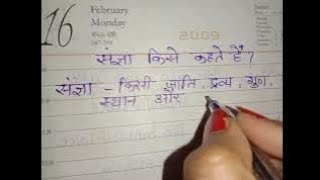 16 February
Monday
2009
संज्ञा किसे कहते हैं?
संज्ञा - किसी जाति, द्रव्य, गुण,
स्थान और